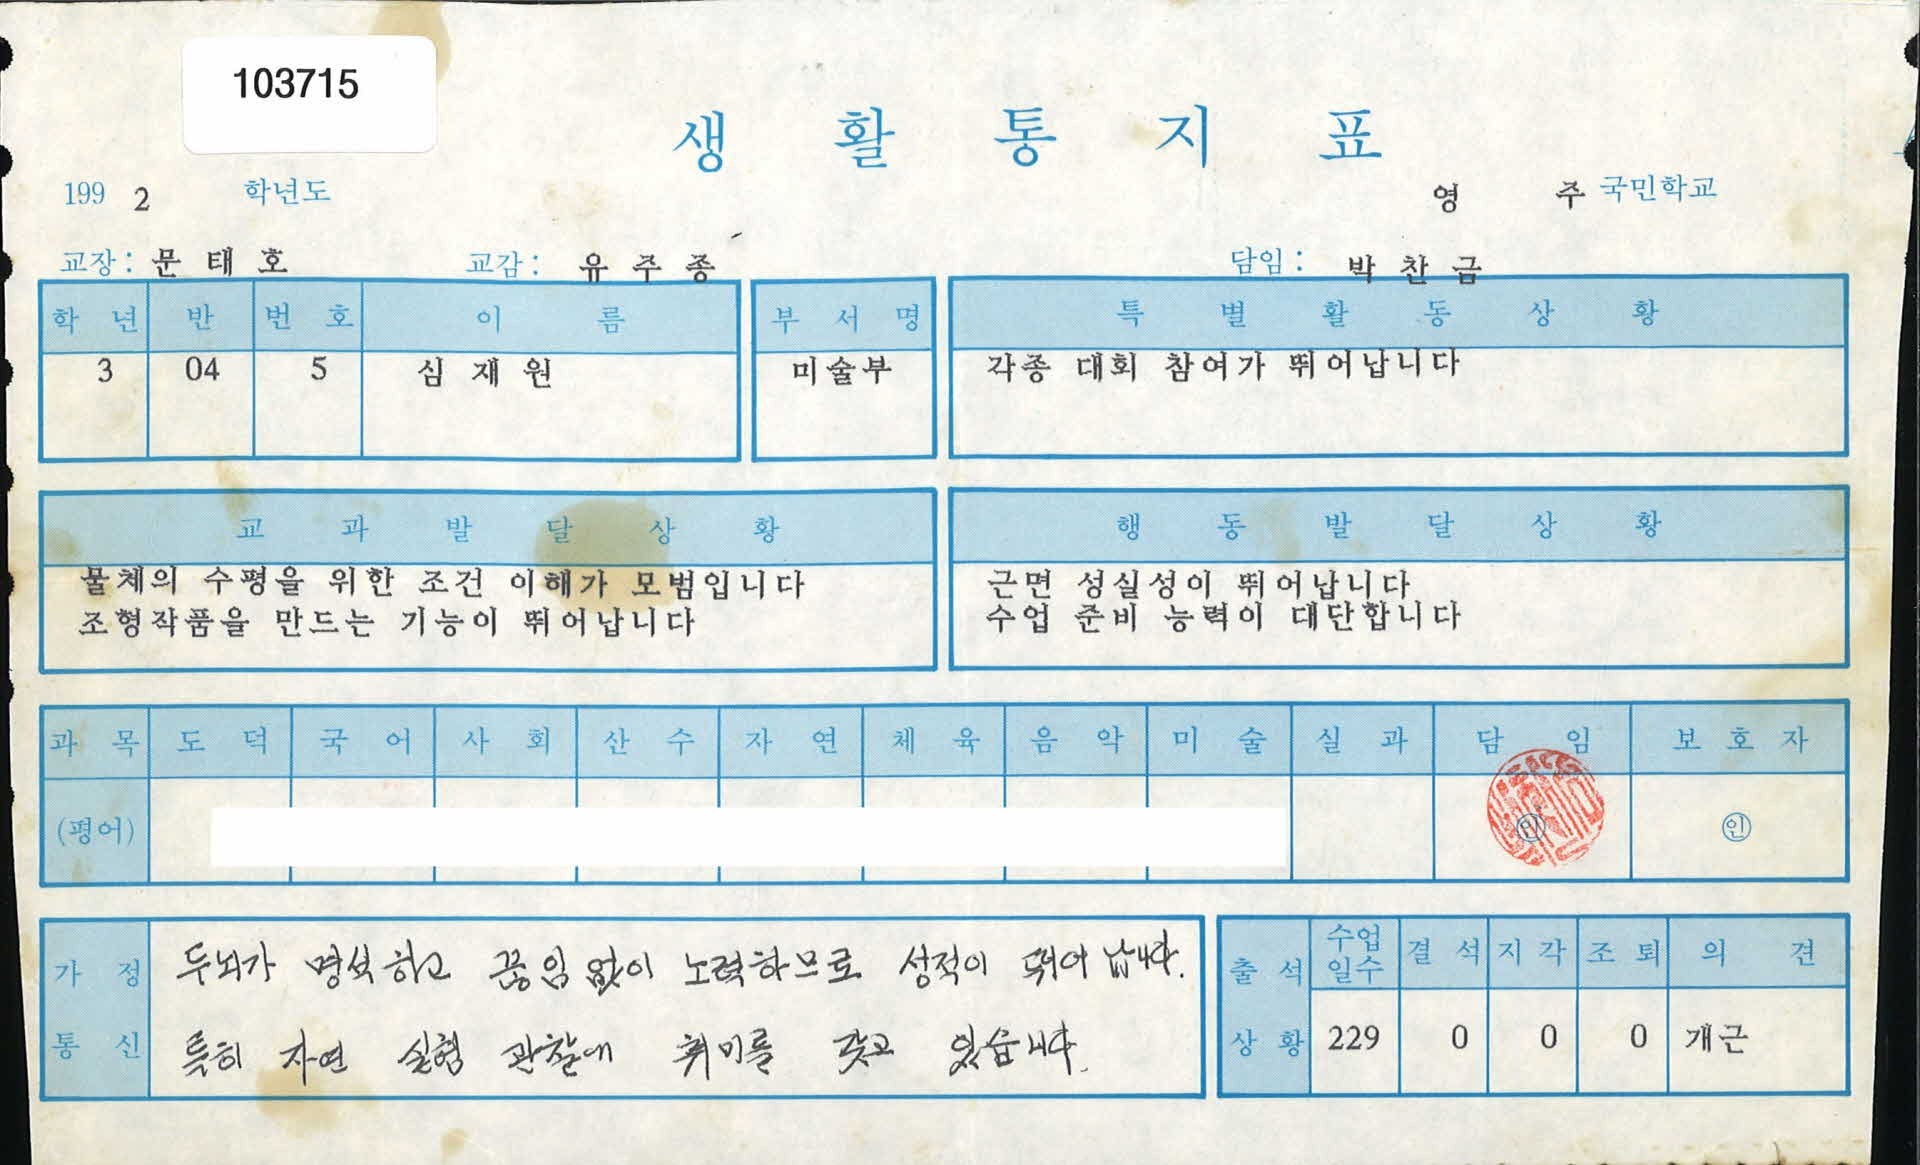 103715
생 활 통 지 표
199 2 학년도
영 주 국민학교
교장: 문 태 호 교감: 유 주 종 담임: 박 찬 금
학 년 반 번 호 이 름 부 서 명 특 별 활 동 상 황
3 04 5 심 재 원 미술부 각종 대회 참여가 뛰어납니다
교 과 발 달 상 황
물체의 수평을 위한 조건 이해가 모범입니다
조형작품을 만드는 기능이 뛰어납니다
행 동 발 달 상 황
근면 성실성이 뛰어납니다
수업 준비 능력이 대단합니다
과 목 도 덕 국 어 사 회 산 수 자 연 체 육 음 악 미 술 실 과 담 임 보 호 자
(평어) 인 인
가 정 통 신
두뇌가 명석하고 끊임 없이 노력하므로 성적이 뛰어 납니다.
특히 자연 실험 관찰에 취미를 갖고 있습니다.
출 석 상 황
수업일수 결 석 지 각 조 퇴 의 견
229 0 0 0 개근